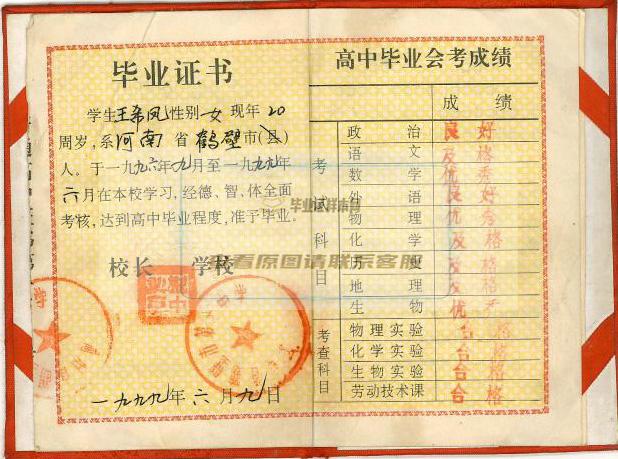 毕业证书
学生王希凤性别女现年20
周岁,系河南省鹤壁市(县)
人。于一九九六年九月至一九九九年
六月在本校学习,经德、智、体全面
考核,达到高中毕业程度,准予毕业。
校长 学校
一九九九年六月九日
高中毕业会考成绩
成绩
考试科目
政治 良好
语文 及格
数学 优秀
外语 良好
物理 优秀
化学 及格
历史 及格
地理 及格
生物 优秀
考查科目
物理实验 合格
化学实验 合格
生物实验 合格
劳动技术课 合格
毕业证样本网
看原图请联系客服